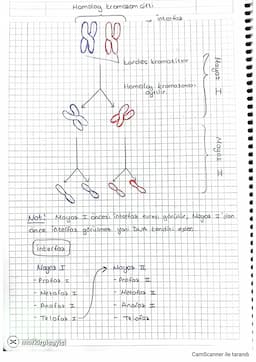 Homolog kromozom çifti
→ interfaz
kardeş kromatitler
Homolog kromozomlar
ayrılır.
Mayoz I
Mayoz II
Not: Mayoz I öncesi interfaz evresi görülür, Mayoz II'den
önce interfaz görülmez yani DNA kendini eşler.
interfaz
Mayoz I
- Profaz I
- Metafaz I
- Anafaz I
- Telofaz I
Mayoz II
- Profaz II
- Metafaz II
- Anafaz II
- Telofaz
CamScanner ile tarandı